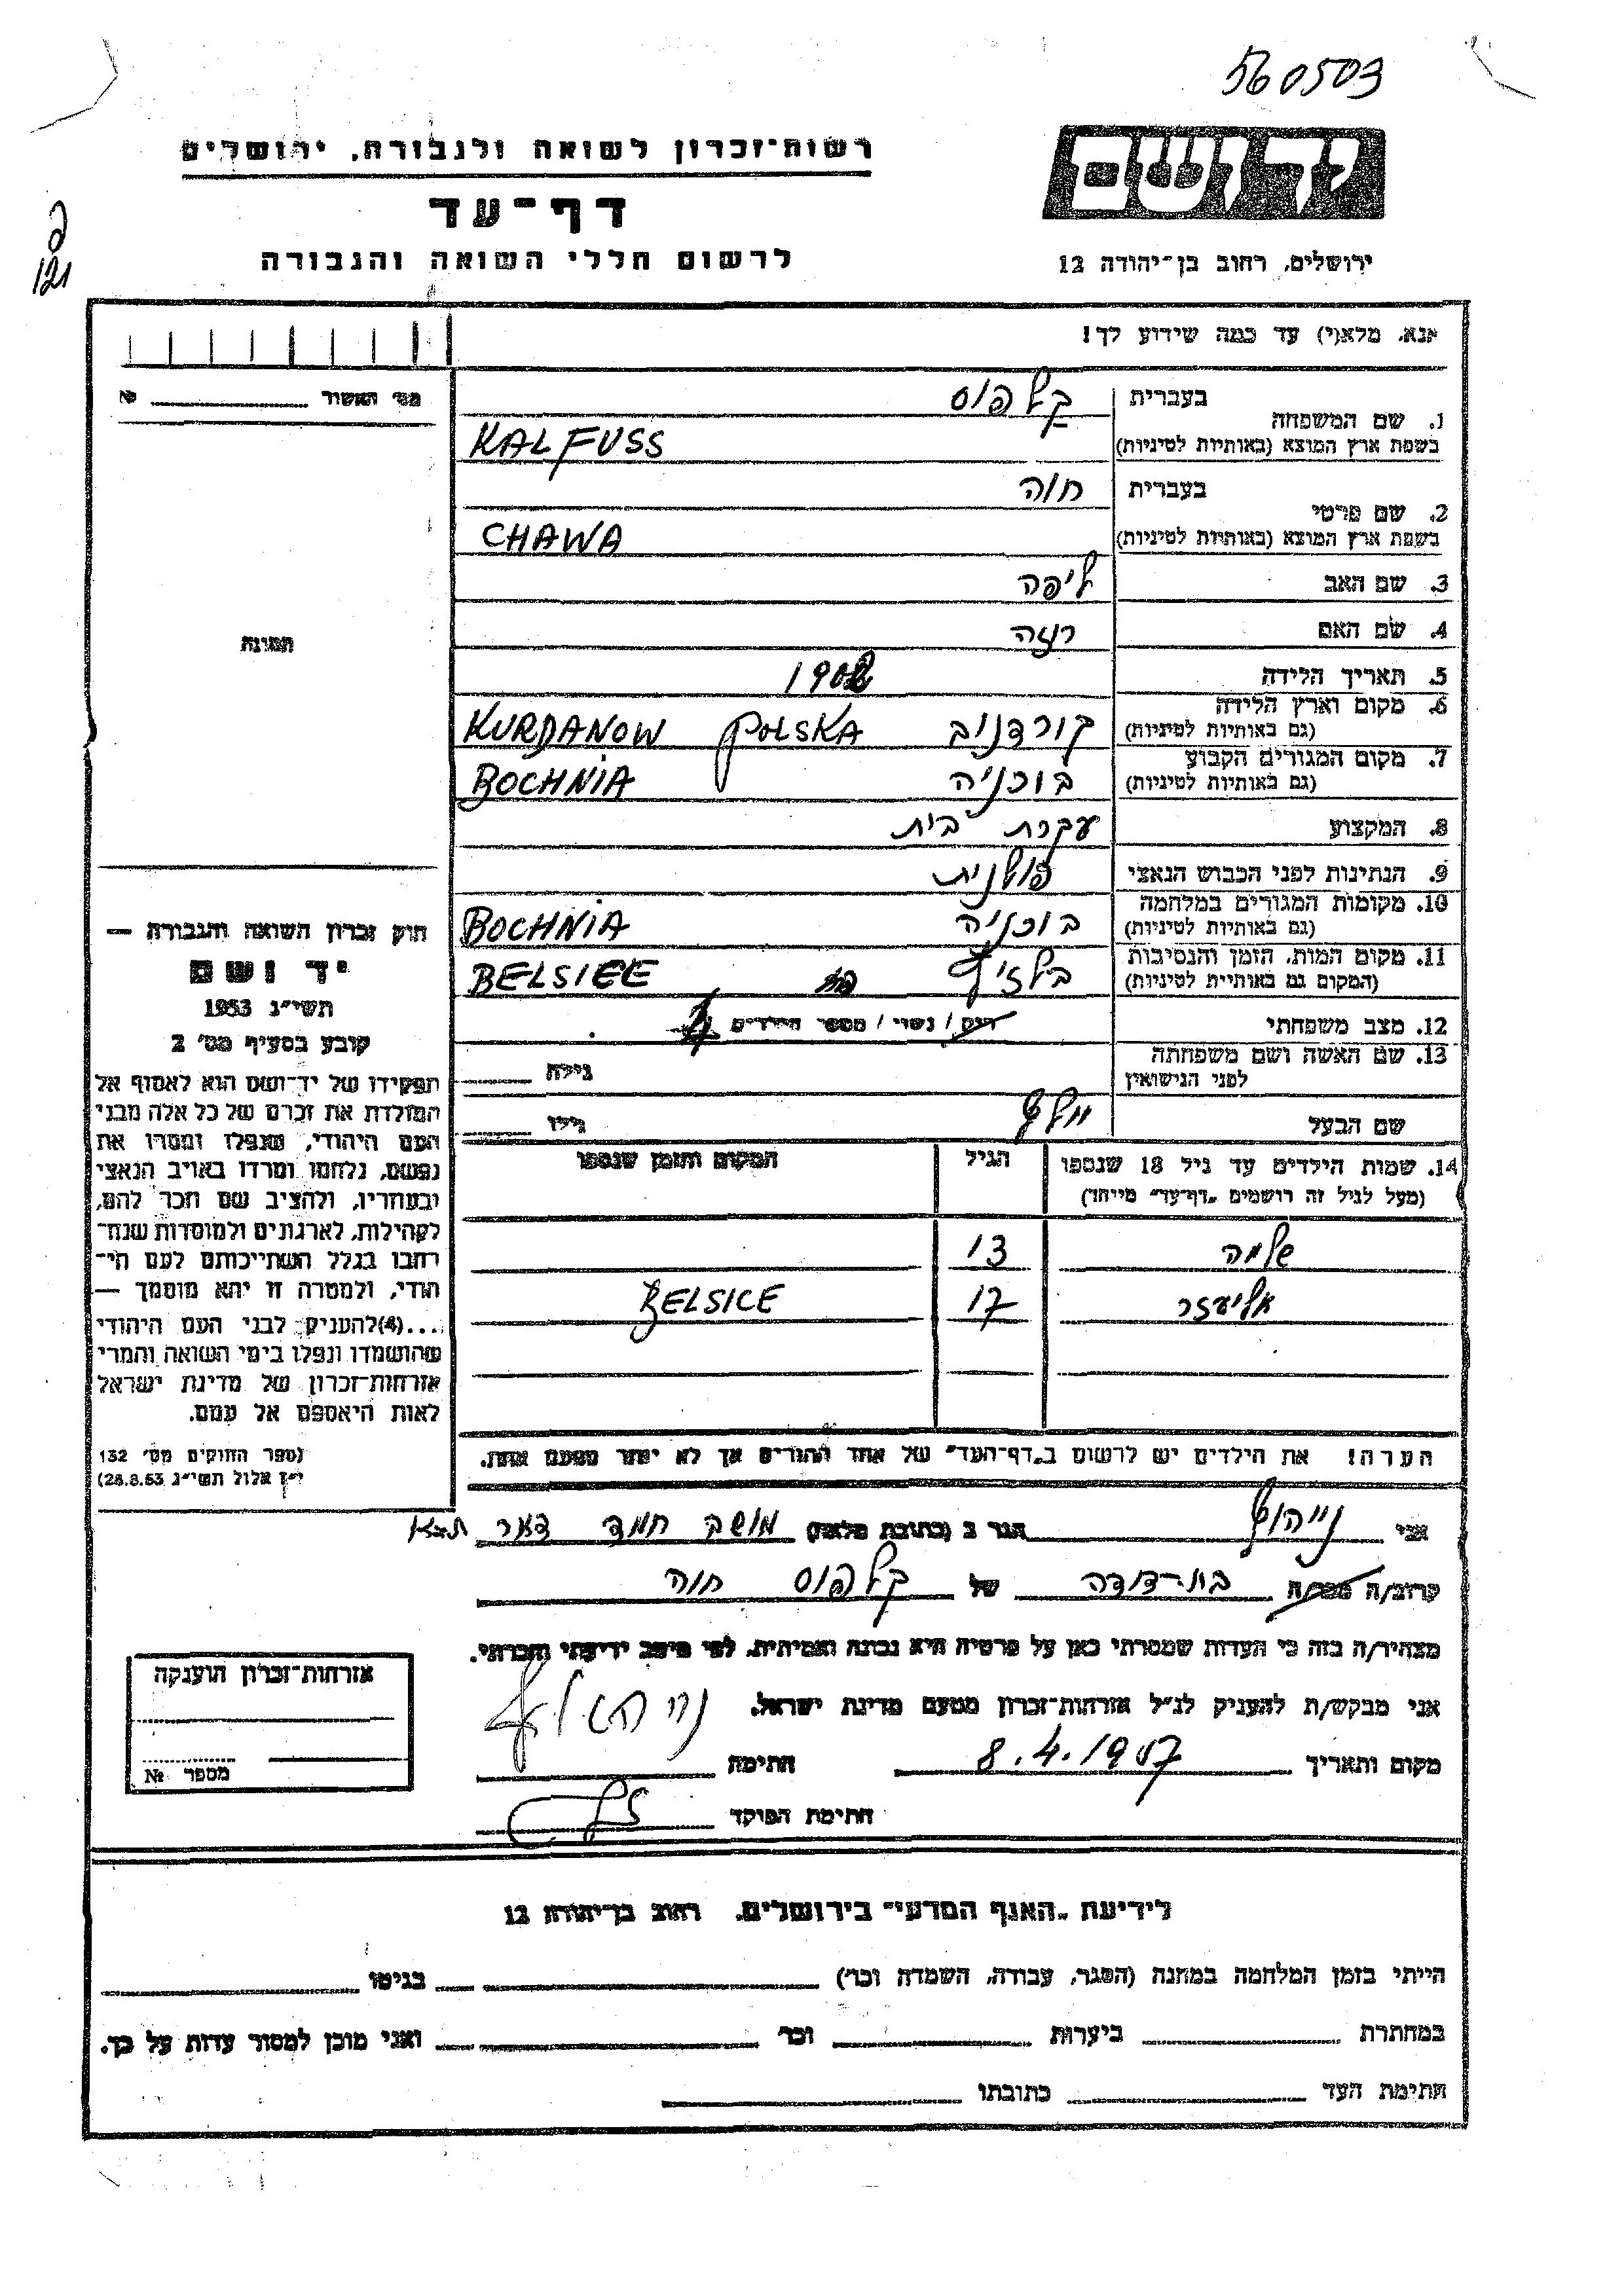 560503
יד ושם
רשות־זכרון לשואה ולגבורה, ירושלים
דף־עד
לרשום חללי השואה והגבורה
ירושלים, רחוב בן־יהודה 12
121
אנא, מלא(י) עד כמה שידוע לך!
מס׳ האשור № 
1. שם המשפחה
בעברית קלפוס
בשפת ארץ המוצא (באותיות לטיניות) KALFUSS
2. שם פרטי
בעברית חוה
בשפת ארץ המוצא (באותיות לטיניות) CHAWA
3. שם האב ליפה
4. שם האם רוזה
תמונה
5. תאריך הלידה
6. מקום וארץ הלידה (גם באותיות לטיניות) קורדנוב POLSKA KURDANOW
7. מקום המגורים הקבוע (גם באותיות לטיניות) בוכניה BOCHNIA
8. המקצוע עקרת בית
9. הנתינות לפני הכבוש הנאצי פולנית
10. מקומות המגורים במלחמה (גם באותיות לטיניות) בוכניה BOCHNIA
11. מקום המות, הזמן והנסיבות (המקום גם באותיית לטיניות) בלזיץ BELSICE
12. מצב משפחתי רווק / נשוי / מספר הילדים
13. שם האשה ושם משפחתה לפני הנישואין גילה
שם הבעל וולף גילו
14. שמות הילדים עד גיל 18 שנספו (מעל לגיל זה רושמים „דף־עד״ מיוחד) הגיל המקום והזמן שנספו
שלמה 13
אליעזר 17 BELSICE
הערה! את הילדים יש לרשום ב„דף־העד״ של אחד ההורים אך לא יותר מפעם אחת.
חוק זכרון השואה והגבורה —
יד ושם
תשי״ג 1953
קובע בסעיף מס׳ 2
תפקידו של יד־ושם הוא לאסוף אל
המולדת את זכרם של כל אלה מבני
העם היהודי, שנפלו ומסרו את
נפשם, נלחמו ומרדו באויב הנאצי
ובעוזריו, ולהציב שם וזכר להם,
לקהילות, לארגונים ולמוסדות שנח־
רבו בגלל השתייכותם לעם הי־
הודי, ולמטרה זו יהא מוסמך —
...(4)להעניק לבני העם היהודי
שהושמדו ונפלו בימי השואה והמרי
אזרחות־זכרון של מדינת ישראל
לאות היאספם אל עמם.
(ספר החוקים מס׳ 132
י״ז אלול תשי״ג 28.8.53)
אני הגר ב (כתובת מלאה) מושב חמד דאר
קרוב/ה מכר/ה בת־דודה של קלפוס חוה
מצהיר/ה בזה כי העדות שמסרתי כאן על פרטיה היא נכונה ואמיתית, לפי מיטב ידיעתי והכרתי.
אני מבקש/ת להעניק לנ״ל אזרחות־זכרון מטעם מדינת ישראל.
מקום ותאריך 8.4.1957 חתימה
חתימת הפוקד
אזרחות־זכרון הוענקה
מספר №
לידיעת „האגף המדעי״ בירושלים, רחוב בן־יהודה 12
הייתי בזמן המלחמה במחנה (הסגר, עבודה, השמדה וכו׳) בגיטו
במחתרת ביערות וכו׳ ואני מוכן למסור עדות על כך.
חתימת העד כתובתו